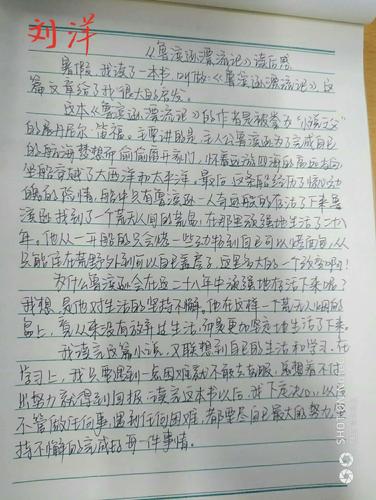 刘洋
《鲁滨逊漂流记》读后感
暑假,我读了一本书,叫做《鲁滨逊漂流记》,这
篇文章给了我很大的启发。
这本《鲁滨逊漂流记》的作者是被誉为“小说之父”
的丹尼尔·笛福。主要讲的是主人公鲁滨逊为了完成自己
的航海梦想而偷偷离开家门,怀着远游四海的高远志向
坐船穿越了大西洋和太平洋。最后,这条船经历了惊心动
魄的险情,船中只有鲁滨逊一人奇迹般的存活了下来鲁
滨逊找到了个荒无人烟的荒岛,在那里顽强地生活了二十八
年。他从一开始的只会烧一些动物到自己可以烤面包,从
只能住在荒野外到可以自己盖房子,这是多大的一个改变啊!
为什么鲁滨逊会在这二十八年中顽强地存活下来呢?
我想是他对生活的坚持不懈。他在这样一个荒无人烟的
岛上,看从来没有放弃过生活,而是更加坚定地生活了下来。
我读完这篇小说,又联想到自己的生活和学习。在
学习上,我只要遇到一点困难就不敢去克服,总想着不付
出努力就得到回报。读完这本书以后,我下定决心,以后
不管做任何事,遇到任何困难,都要尽自己最大的努力,坚
持不懈的完成好每一件事情。
SHOT ON